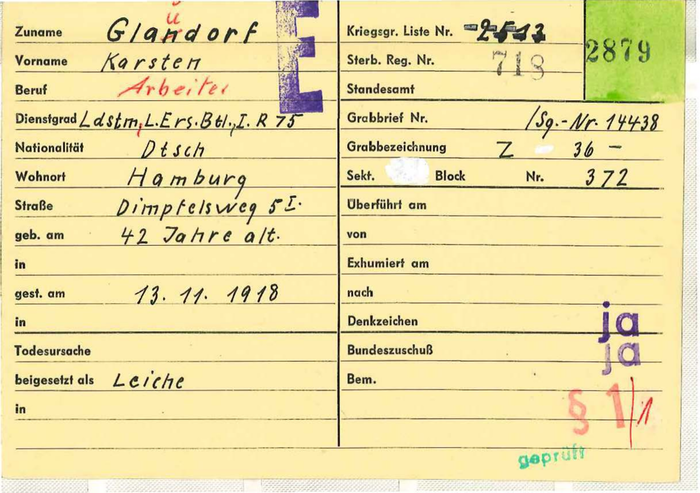 u
Zuname Glandorf
Vorname Karsten
Beruf Arbeiter
Dienstgrad Ldstm, L.Ers.Btl., I. R 75
Nationalität Dtsch
Wohnort Hamburg
Straße Dimpfelsweg 5 I.
geb. am 42 Jahre alt.
in
gest. am 13. 11. 1918
in
Todesursache
beigesetzt als Leiche
in
E
Kriegsgr. Liste Nr. 2513
Sterb. Reg. Nr. 718
2879
Standesamt
Grabbrief Nr. /Sg.-Nr. 14438
Grabbezeichnung Z 36 -
Sekt. Block Nr. 372
Überführt am
von
Exhumiert am
nach
Denkzeichen ja
Bundeszuschuß ja
Bem.
§ 1/1
geprüft